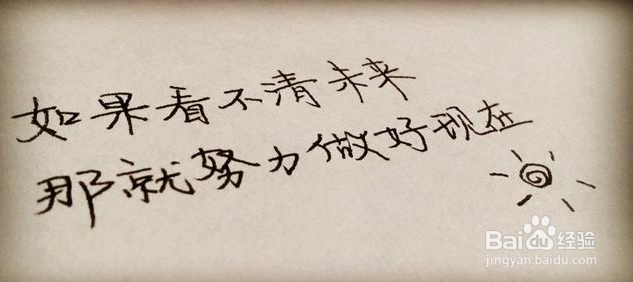 如果看不清未来
那就努力做好现在
Baidu经验
jingyan.baidu.com